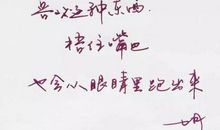 喜欢这种东西，
捂住嘴巴
也会从眼睛里跑出来